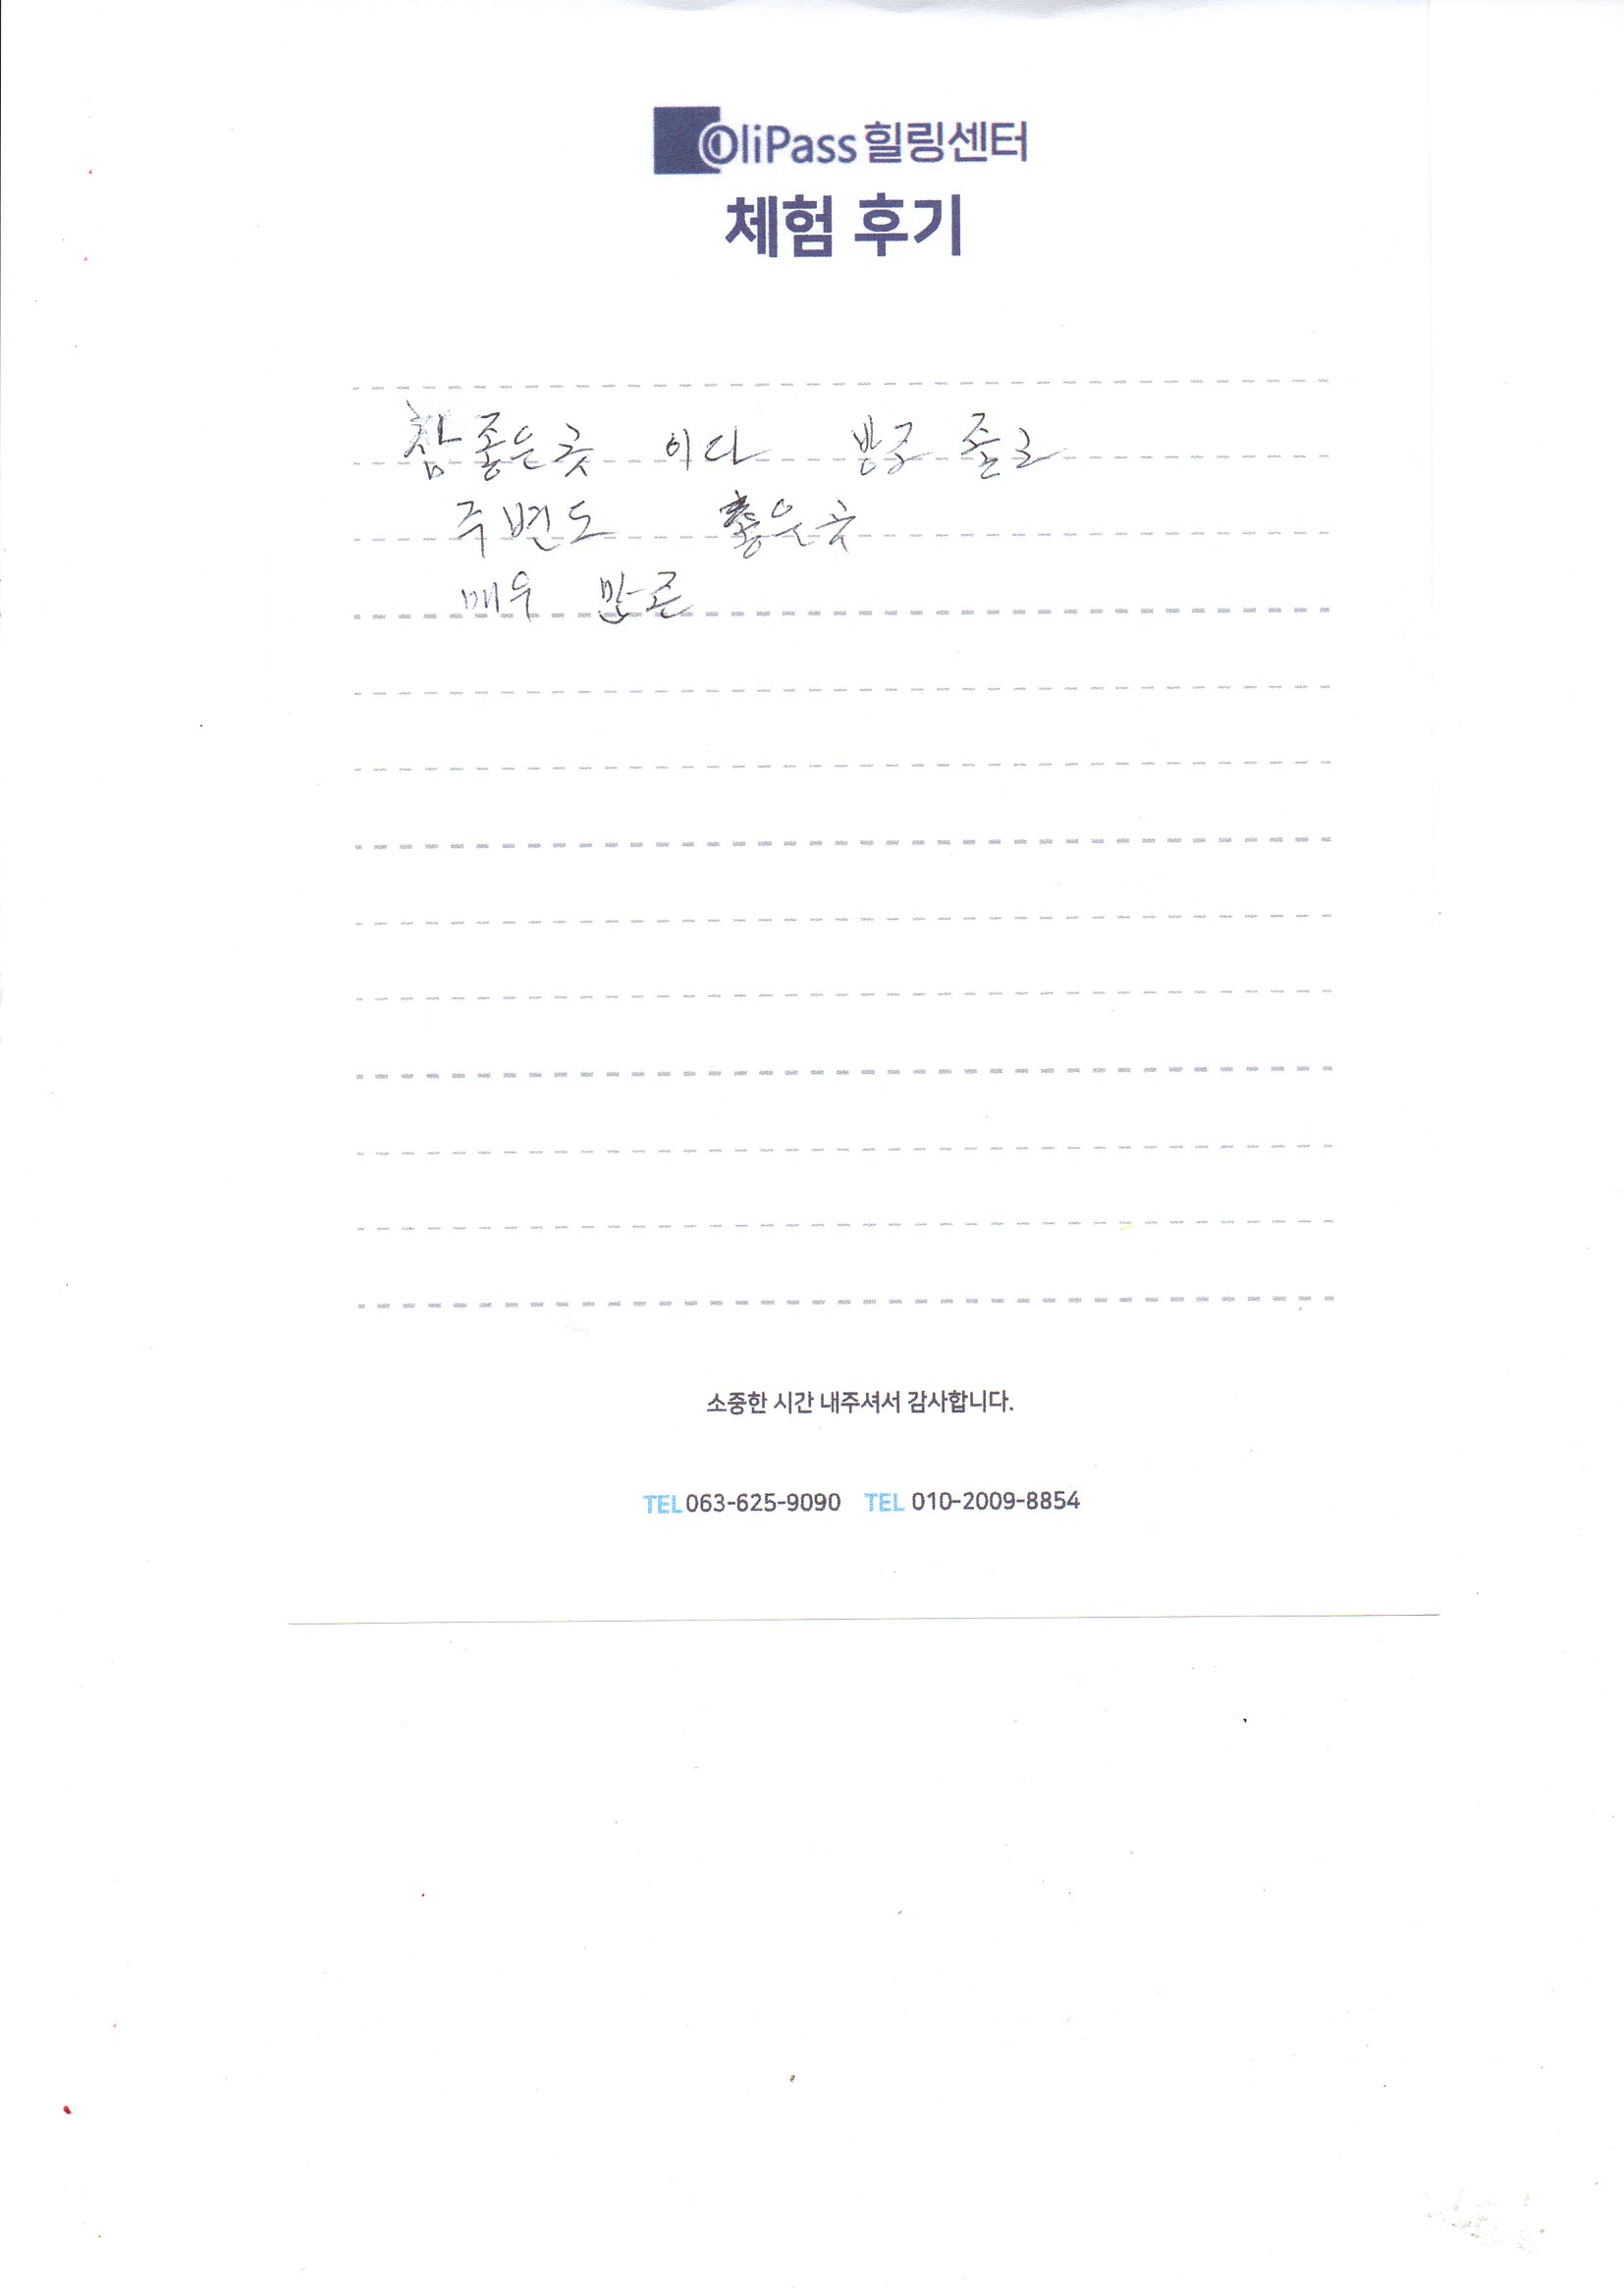 OliPass 힐링센터
체험 후기
참 좋은 곳 이다
주변도 좋은곳
매우
소중한 시간 내주셔서 감사합니다.
TEL 063-625-9090 TEL 010-2009-8854